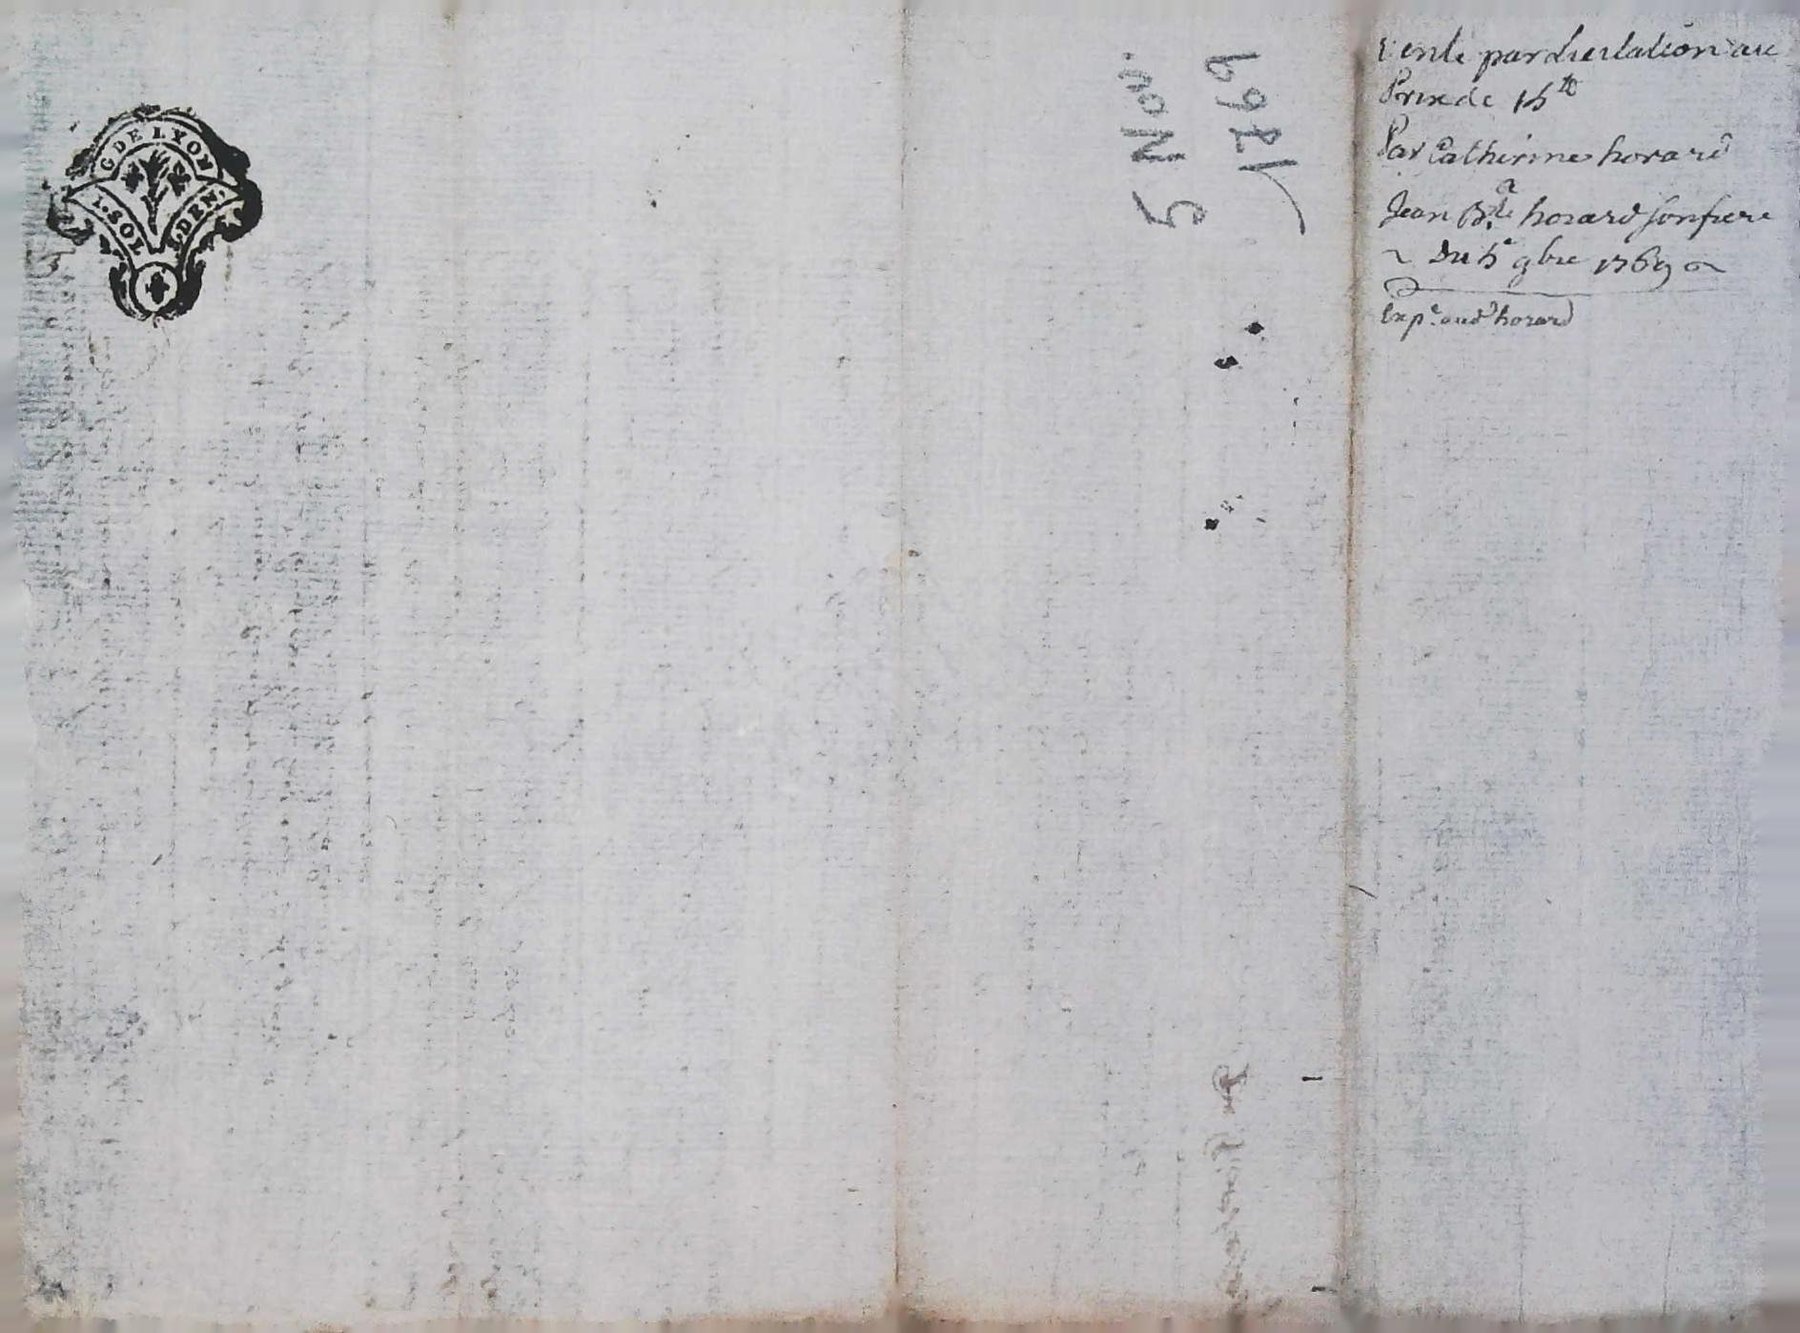 G DE LYON
1. SOL
DEN.
5 Nov.
1769
Vente par licitation au
Prix de 15 ₶
Par Catherine horard
a
Jean Bte horard son frere
~ Du 5e 9bre 1769 ~
Expe. aud horard